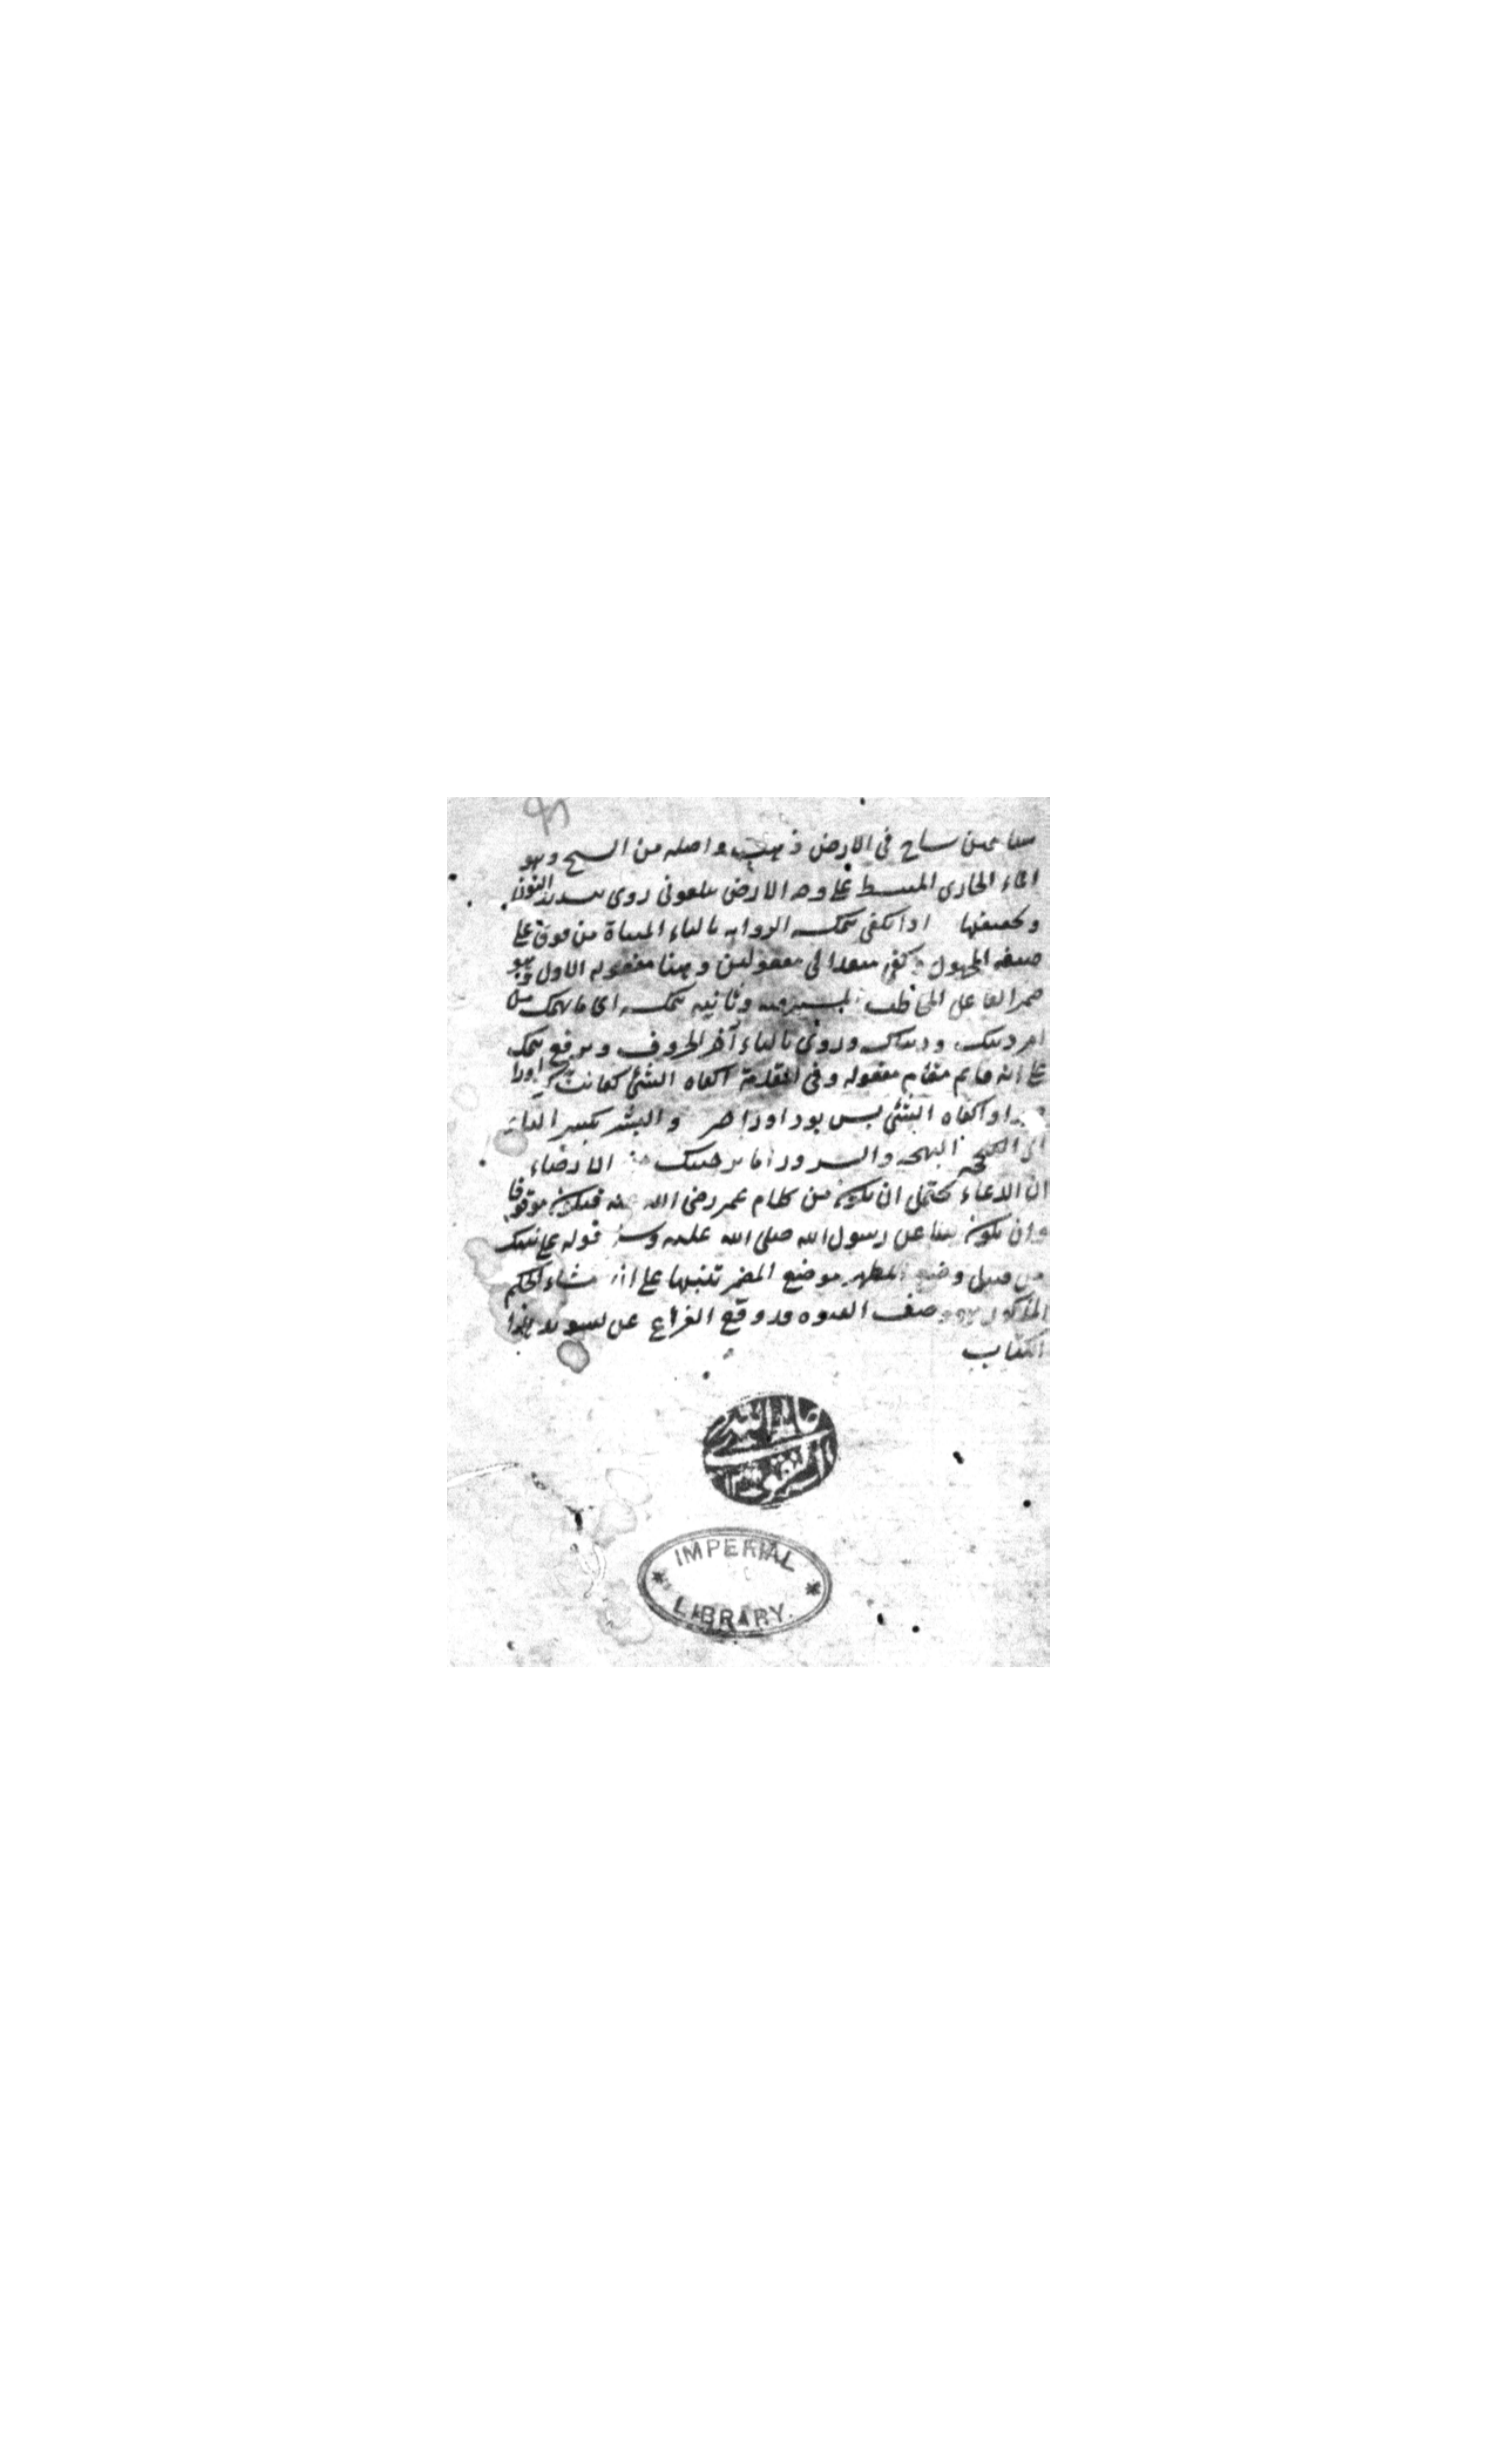 ساح في الارض ذهب واصله من السيح وهو
الماء الجاري المنبسط على وجه الارض يبلغوني روى بتشديد النون
وتخفيفها اذا تكفى همك الرواية بالتاء المثناة من فوق على
صيغة المجهول وكفى يتعدى الى مفعولين وههنا مفعوله الاول وهو
ضمير الفاعل المخاطب وثانيه همك اي ما يهمك من
امر دينك ودنياك وروى بالياء آخر الحروف وبرفع همك
على انه قايم مقام مفعوله وفي المقدمة كفاه الشئ
كفاه الشئ بس بود اورا والبشر بكسر الباء
البهجة والسرور اما الارضاء
ان الدعاء يحتمل ان يكون من كلام عمر رضي الله عنه فيكون موقوفا
وان يكون عن رسول الله صلى الله عليه وسلم قوله على نبيك
من قبيل وضع المظهر موضع المضمر تنبيها على ان منشاء الحكم
المذكور هو وصف النبوة قد وقع الفراغ عن تسويد هذا
الكتاب
IMPERIAL
LIBRARY.